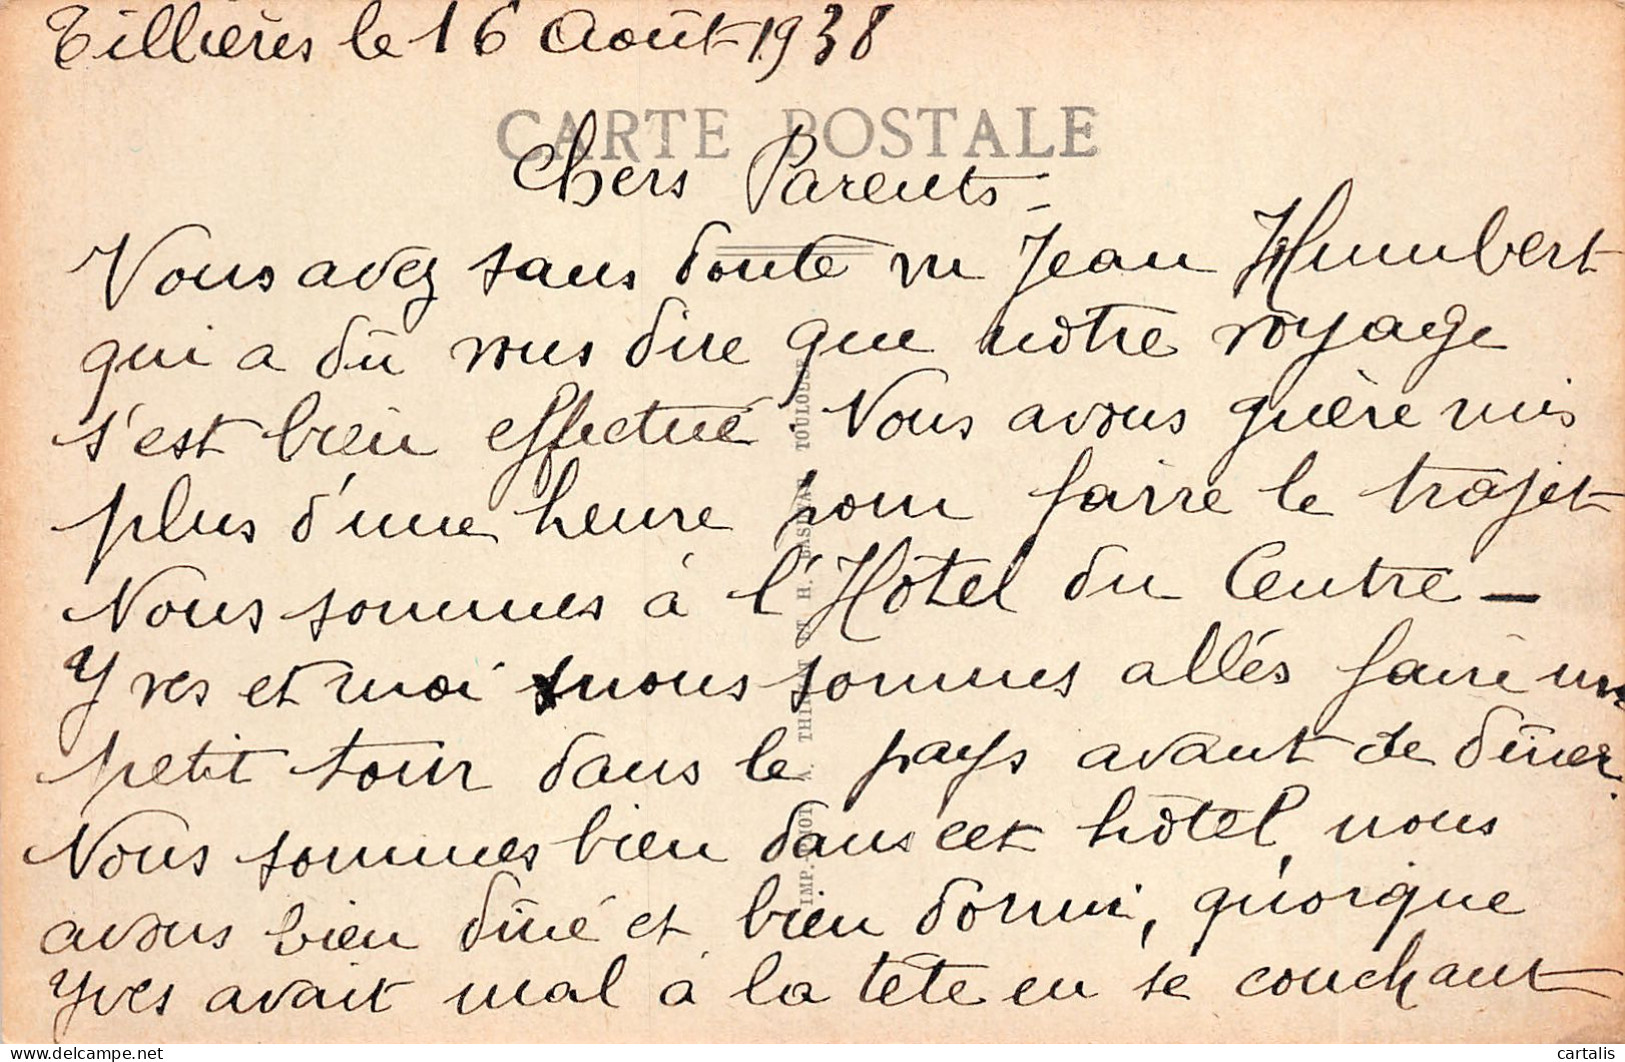 Tillières le 16 Août 1938
CARTE POSTALE
Chers Parents -
Vous avez sans doute vu Jean Humbert
qui a dû vous dire que nôtre voyage
s'est bien effectué. Nous avons guère mis
plus d'une heure pour faire le trajet
Nous sommes à l'Hôtel du Centre -
Yves et moi nous sommes allés faire un
petit tour dans le pays avant de dîner.
Nous sommes bien dans cet hôtel, nous
avons bien dîné et bien dormi, quoique
Yves avait mal à la tête en se couchant
THIRIAT ET H. BASUYAU TOULOUSE
delcampe.net
cartalis